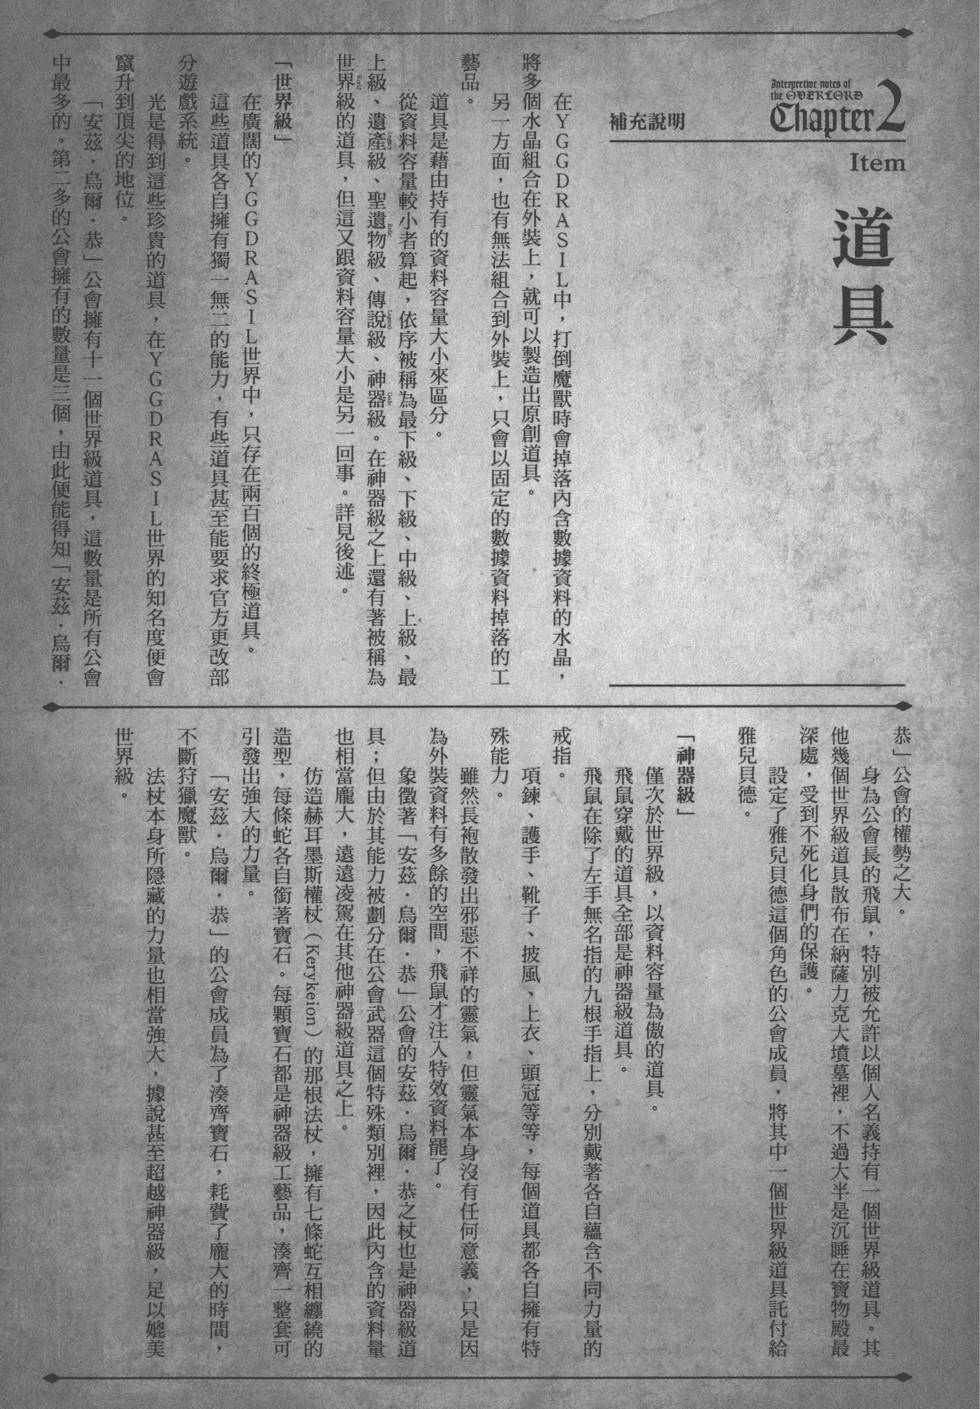 Interpretive notes of
the OVERLORD
Chapter 2
補充說明
Item
道具
在YGGDRASIL中，打倒魔獸時會掉落內含數據資料的水晶，
將多個水晶組合在外裝上，就可以製造出原創道具。
另一方面，也有無法組合到外裝上，只會以固定的數據資料掉落的工
藝品。
道具是藉由持有的資料容量大小來區分。
從資料容量較小者算起，依序被稱為最下級、下級、中級、上級、最
上級、遺產級、聖遺物級、傳說級、神器級。在神器級之上還有著被稱為
世界級的道具，但這又跟資料容量大小是另一回事。詳見後述。
「世界級」
在廣闊的YGGDRASIL世界中，只存在兩百個的終極道具。
這些道具各自擁有獨一無二的能力，有些道具甚至能要求官方更改部
分遊戲系統。
光是得到這些珍貴的道具，在YGGDRASIL世界的知名度便會
竄升到頂尖的地位。
「安茲．烏爾．恭」公會擁有十一個世界級道具，這數量是所有公會
中最多的。第二多的公會擁有的數量是三個，由此便能得知「安茲．烏爾．
恭」公會的權勢之大。
身為公會長的飛鼠，特別被允許以個人名義持有一個世界級道具。其
他幾個世界級道具散布在納薩力克大墳墓裡，不過大半是沉睡在寶物殿最
深處，受到不死化身們的保護。
設定了雅兒貝德這個角色的公會成員，將其中一個世界級道具託付給
雅兒貝德。
「神器級」
僅次於世界級，以資料容量為傲的道具。
飛鼠穿戴的道具全部是神器級道具。
飛鼠在除了左手無名指的九根手指上，分別戴著各自蘊含不同力量的
戒指。
項鍊、護手、靴子、披風、上衣、頭冠等等，每個道具都各自擁有特
殊能力。
雖然長袍散發出邪惡不祥的靈氣，但靈氣本身沒有任何意義，只是因
為外裝資料有多餘的空間，飛鼠才注入特效資料罷了。
象徵著「安茲．烏爾．恭」公會的安茲．烏爾．恭之杖也是神器級道
具；但由於其能力被劃分在公會武器這個特殊類別裡，因此內含的資料量
也相當龐大，遠遠凌駕在其他神器級道具之上。
仿造赫耳墨斯權杖（Kerykeion）的那根法杖，擁有七條蛇互相纏繞的
造型，每條蛇各自銜著寶石。每顆寶石都是神器級工藝品，湊齊一整套可
引發出強大的力量。
「安茲．烏爾．恭」的公會成員為了湊齊寶石，耗費了龐大的時間，
不斷狩獵魔獸。
法杖本身所隱藏的力量也相當強大，據說甚至超越神器級，足以媲美
世界級。